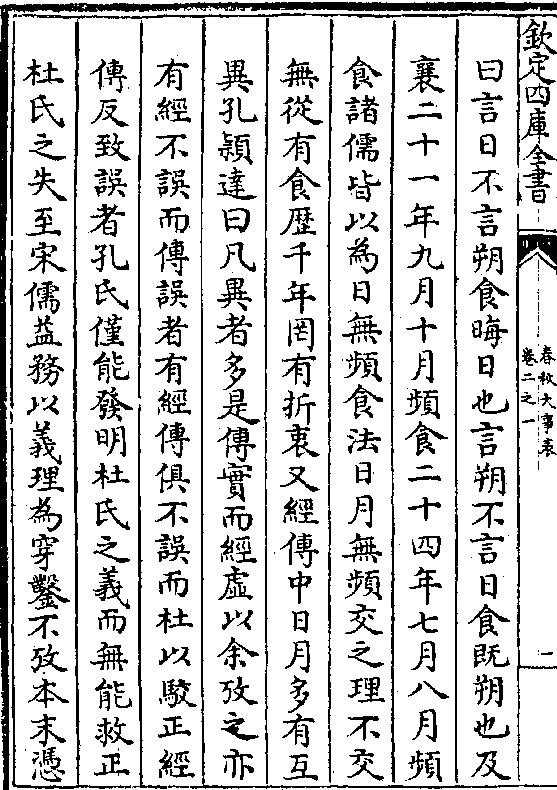 欽定四庫全書
春秋大事表
卷二之一
一
曰言日不言朔食晦日也言朔不言日食既朔也及
襄二十一年九月十月頻食二十四年七月八月頻
食諸儒皆以為日無頻食法日月無頻交之理不交
無從有食歴千年罔有折衷又經傳中日月多有互
異孔穎達曰凡異者多是傳實而經虛以余攷之亦
有經不誤而傳誤者有經傳俱不誤而杜以駮正經
傳反致誤者孔氏僅能發明杜氏之義而無能救正
杜氏之失至宋儒益務以義理為穿鑿不攷本末憑